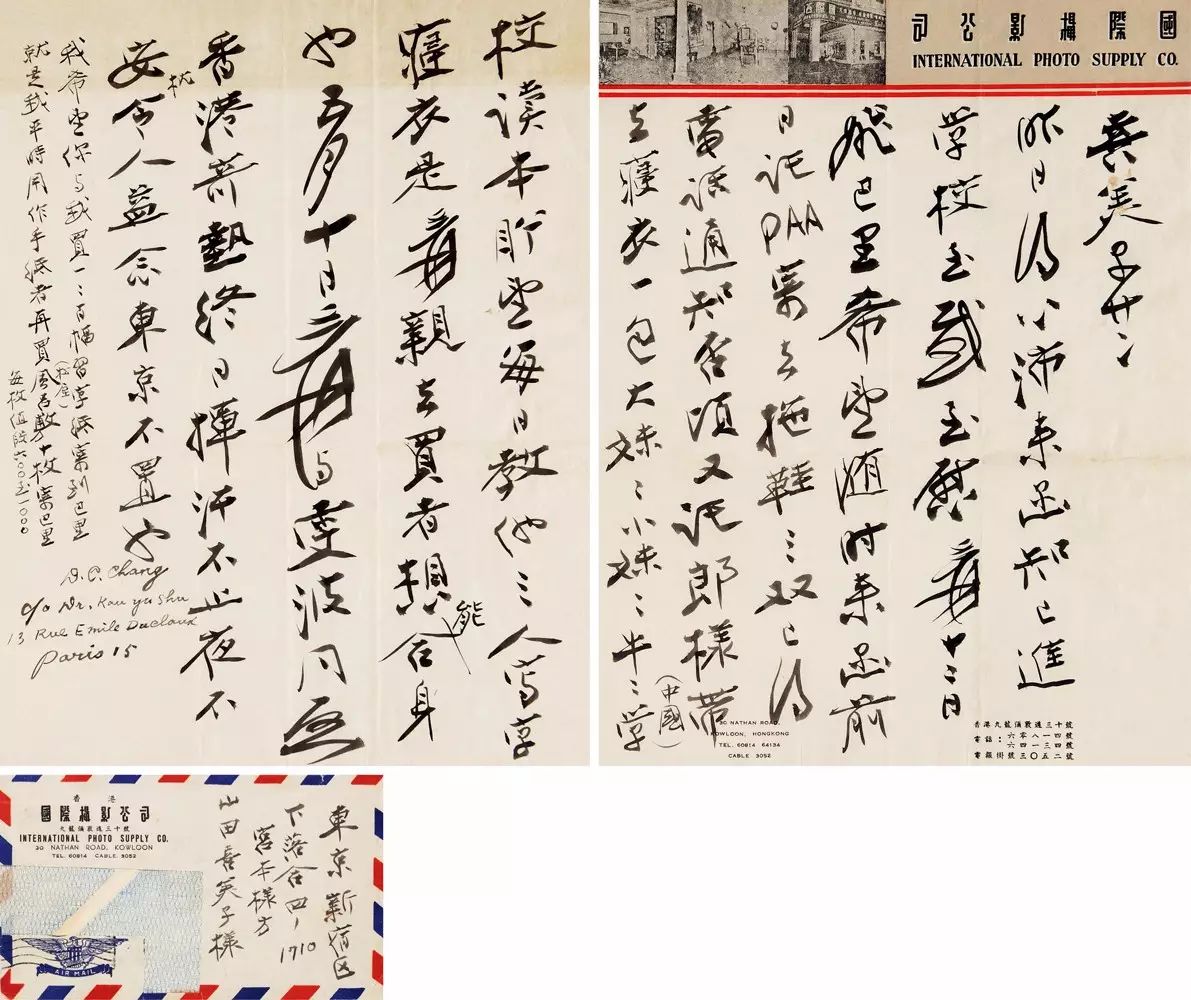 司公影攝際國
INTERNATIONAL PHOTO SUPPLY CO.
喜美子
昨日得小沛来函知已進
學校至感至慰爰十二日
飛巴里希望随时来函前
日託PAA寄去拖鞋三双已得
電話通知否頃又託郎樣带
去寢衣一包大妹〻小妹〻牛〻學
(中國)
校读本盼望每日教他三人写字
寢衣是爰親去買者想能合身
也五月十日爰与雯波同啟
香港苦熱終日揮汗不止夜不
安枕令人益念東京不置也
我希望你与我買一二百幅習字紙寄到巴里
就是我平時用作手紙者再買風呂敷十枚寄巴里
(松屋)
每枚值段六〇〇至一〇〇〇
D.C. Chang
c/o Dr. Kou yu Shu
13 Rue Emile Duclaux
Paris 15
30 NATHAN ROAD,
KOWLOON, HONGKONG
TEL. 60814 64134
CABLE 3052
香港九龍彌敦道三十號
電話:六零八一四號
六四一三四號
電報掛號三〇五二號
香港
國際攝影公司
九龍彌敦道三十號
INTERNATIONAL PHOTO SUPPLY CO.
30 NATHAN ROAD, KOWLOON
TEL. 60814 CABLE. 3052
東京新宿区
下落合四ノ1710
宮本樣方
山田喜美子樣
AIR MAIL